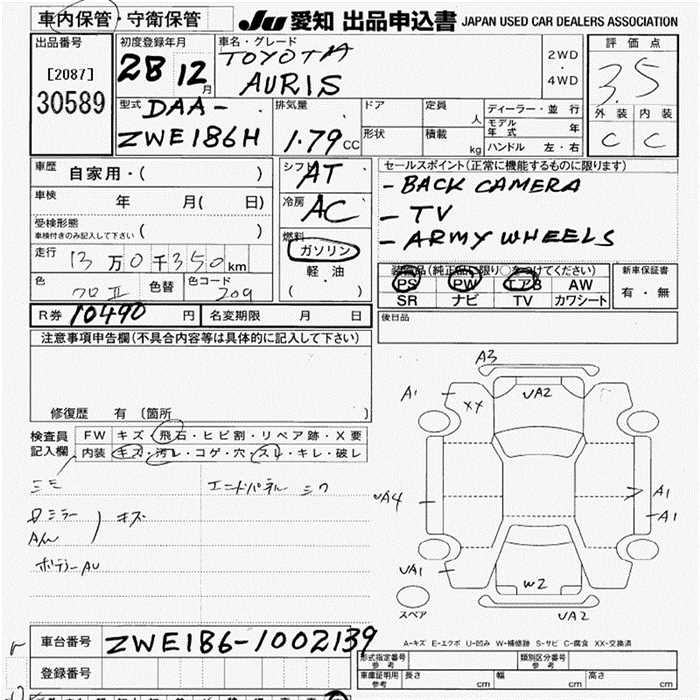 車内保管・守衛保管
JU 愛知 出品申込書 JAPAN USED CAR DEALERS ASSOCIATION
出品番号
[2087]
30589
初度登録年月
28 12月
車名・グレード
TOYOTA
AURIS
2WD
・
4WD
評価点
3.5
外装 内装
C C
型式 DAA-
ZWE186H
排気量
1.79 CC
ドア
形状
定員
人
積載
kg
ディーラー・並行
モデル年式 年
ハンドル 左・右
車歴
自家用・( )
車検 年 月( 日)
受検形態
車検付きのみ記入して下さい ( )
走行 13万0千350km
色 クロⅡ 色替 色コード 209
シフト AT
冷房 AC
燃料
ガソリン
軽・油
( )
セールスポイント(正常に機能するものに限ります)
- BACK CAMERA
- TV
- ARMY WHEELS
装備品(純正品に限り○をつけてください)
PS PW エアB AW
SR ナビ TV カワシート
新車保証書
有・無
R券 10490 円 名変期限 月 日
後日品
注意事項申告欄(不具合内容等は具体的に記入して下さい)
修復歴 有 (箇所 )
検査員
記入欄
FW キズ・飛石・ヒビ割・リペア跡・X要
内装 キズ・汚レ・コゲ・穴・スレ・キレ・破レ
エンドパネル シワ
キズ
A3
A1
XX
UA2
UA4
A1
A1
UA1
W2
UA2
スペア
A-キズ E-エクボ U-凹み W-補修跡 S-サビ C-腐食 XX-交換済
車台番号 ZWE186-1002139
登録番号
形式指定番号
参考
類別区分番号
参考
車庫証明用
参考
長さ cm 幅 cm 高さ cm